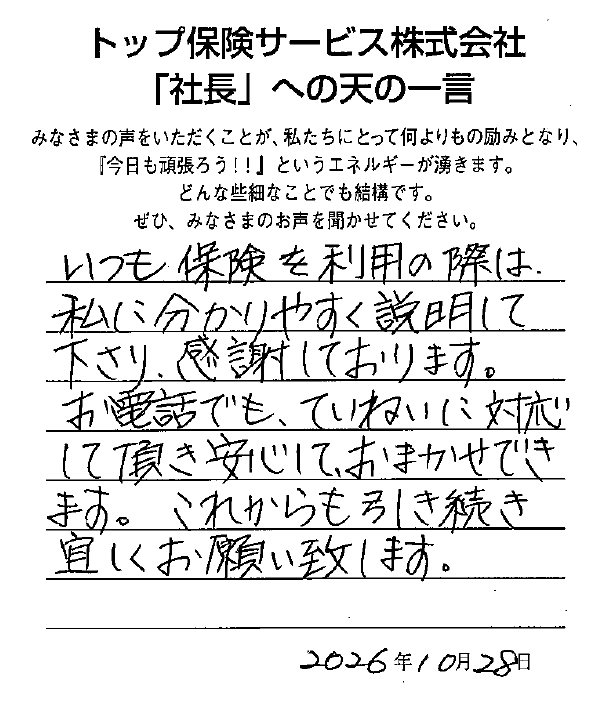 トップ保険サービス株式会社
「社長」への天の一言
みなさまの声をいただくことが、私たちにとって何よりもの励みとなり、
『今日も頑張ろう!!』というエネルギーが湧きます。
どんな些細なことでも結構です。
ぜひ、みなさまのお声を聞かせてください。
いつも保険を利用の際は、
私に分かりやすく説明して
下さり、感謝しております。
お電話でも、ていねいに対応
して頂き安心して、おまかせでき
ます。これからも引き続き
宜しくお願い致します。
2026年10月28日